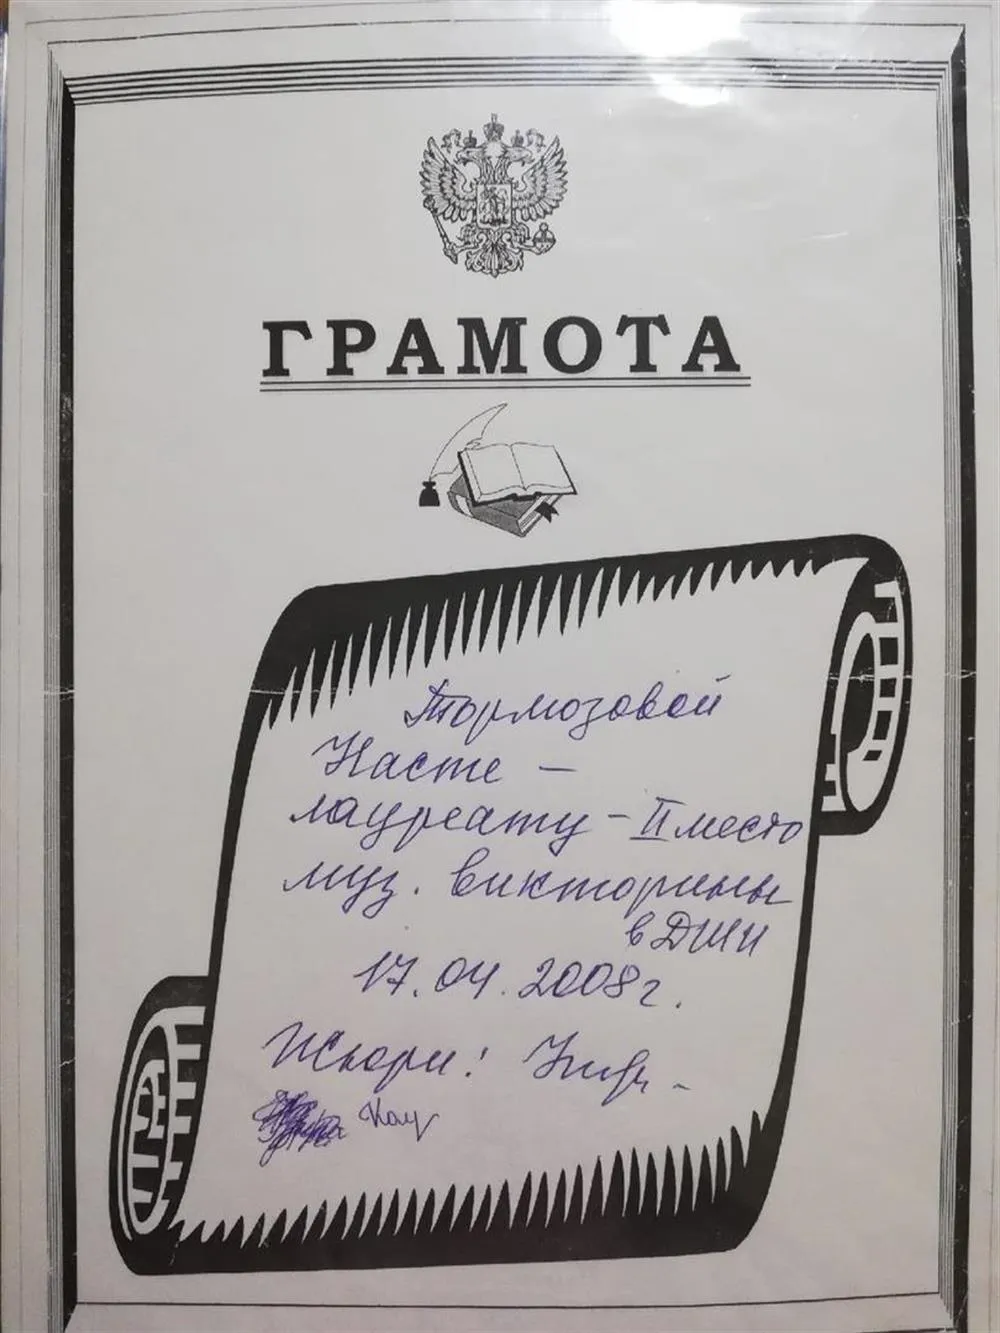 ГРАМОТА
Тормозовой
Насте –
лауреату – II место
муз. викторины
в ДШИ
17.04.2008г.
Жюри: